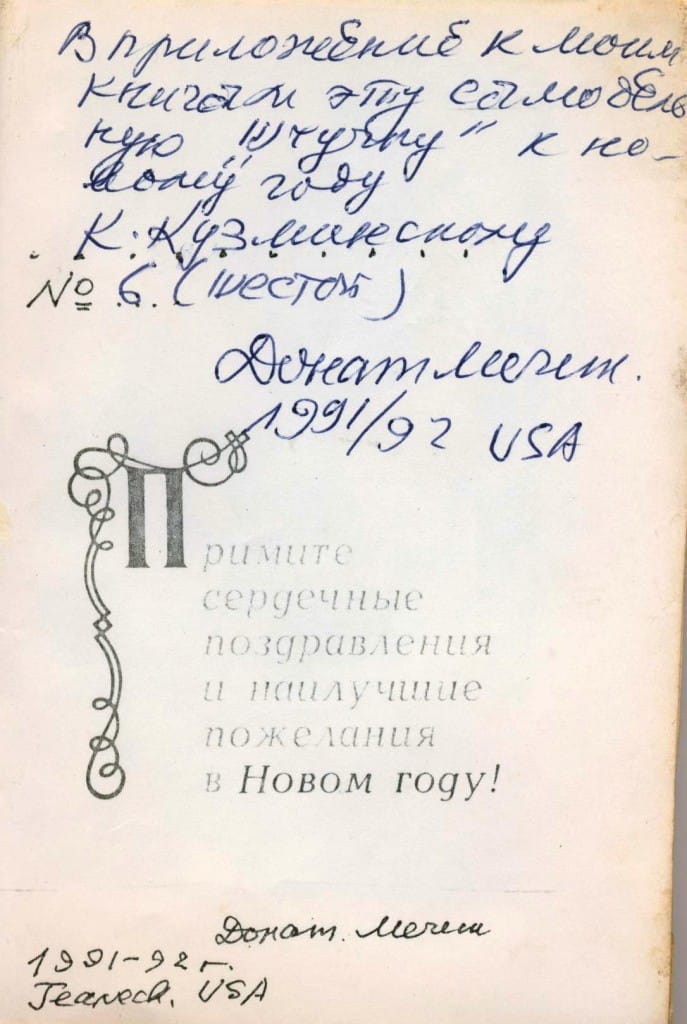 В приложение к моим
книгам эту самодель
ную „Штучку" к но-
вому году
К. Кузминскому
№ 6. (шестой)
Донат Мечик.
1991/92 USA
Примите
сердечные
поздравления
и наилучшие
пожелания
в Новом году!
Донат. Мечик
1991-92 г.
Teaneck. USA